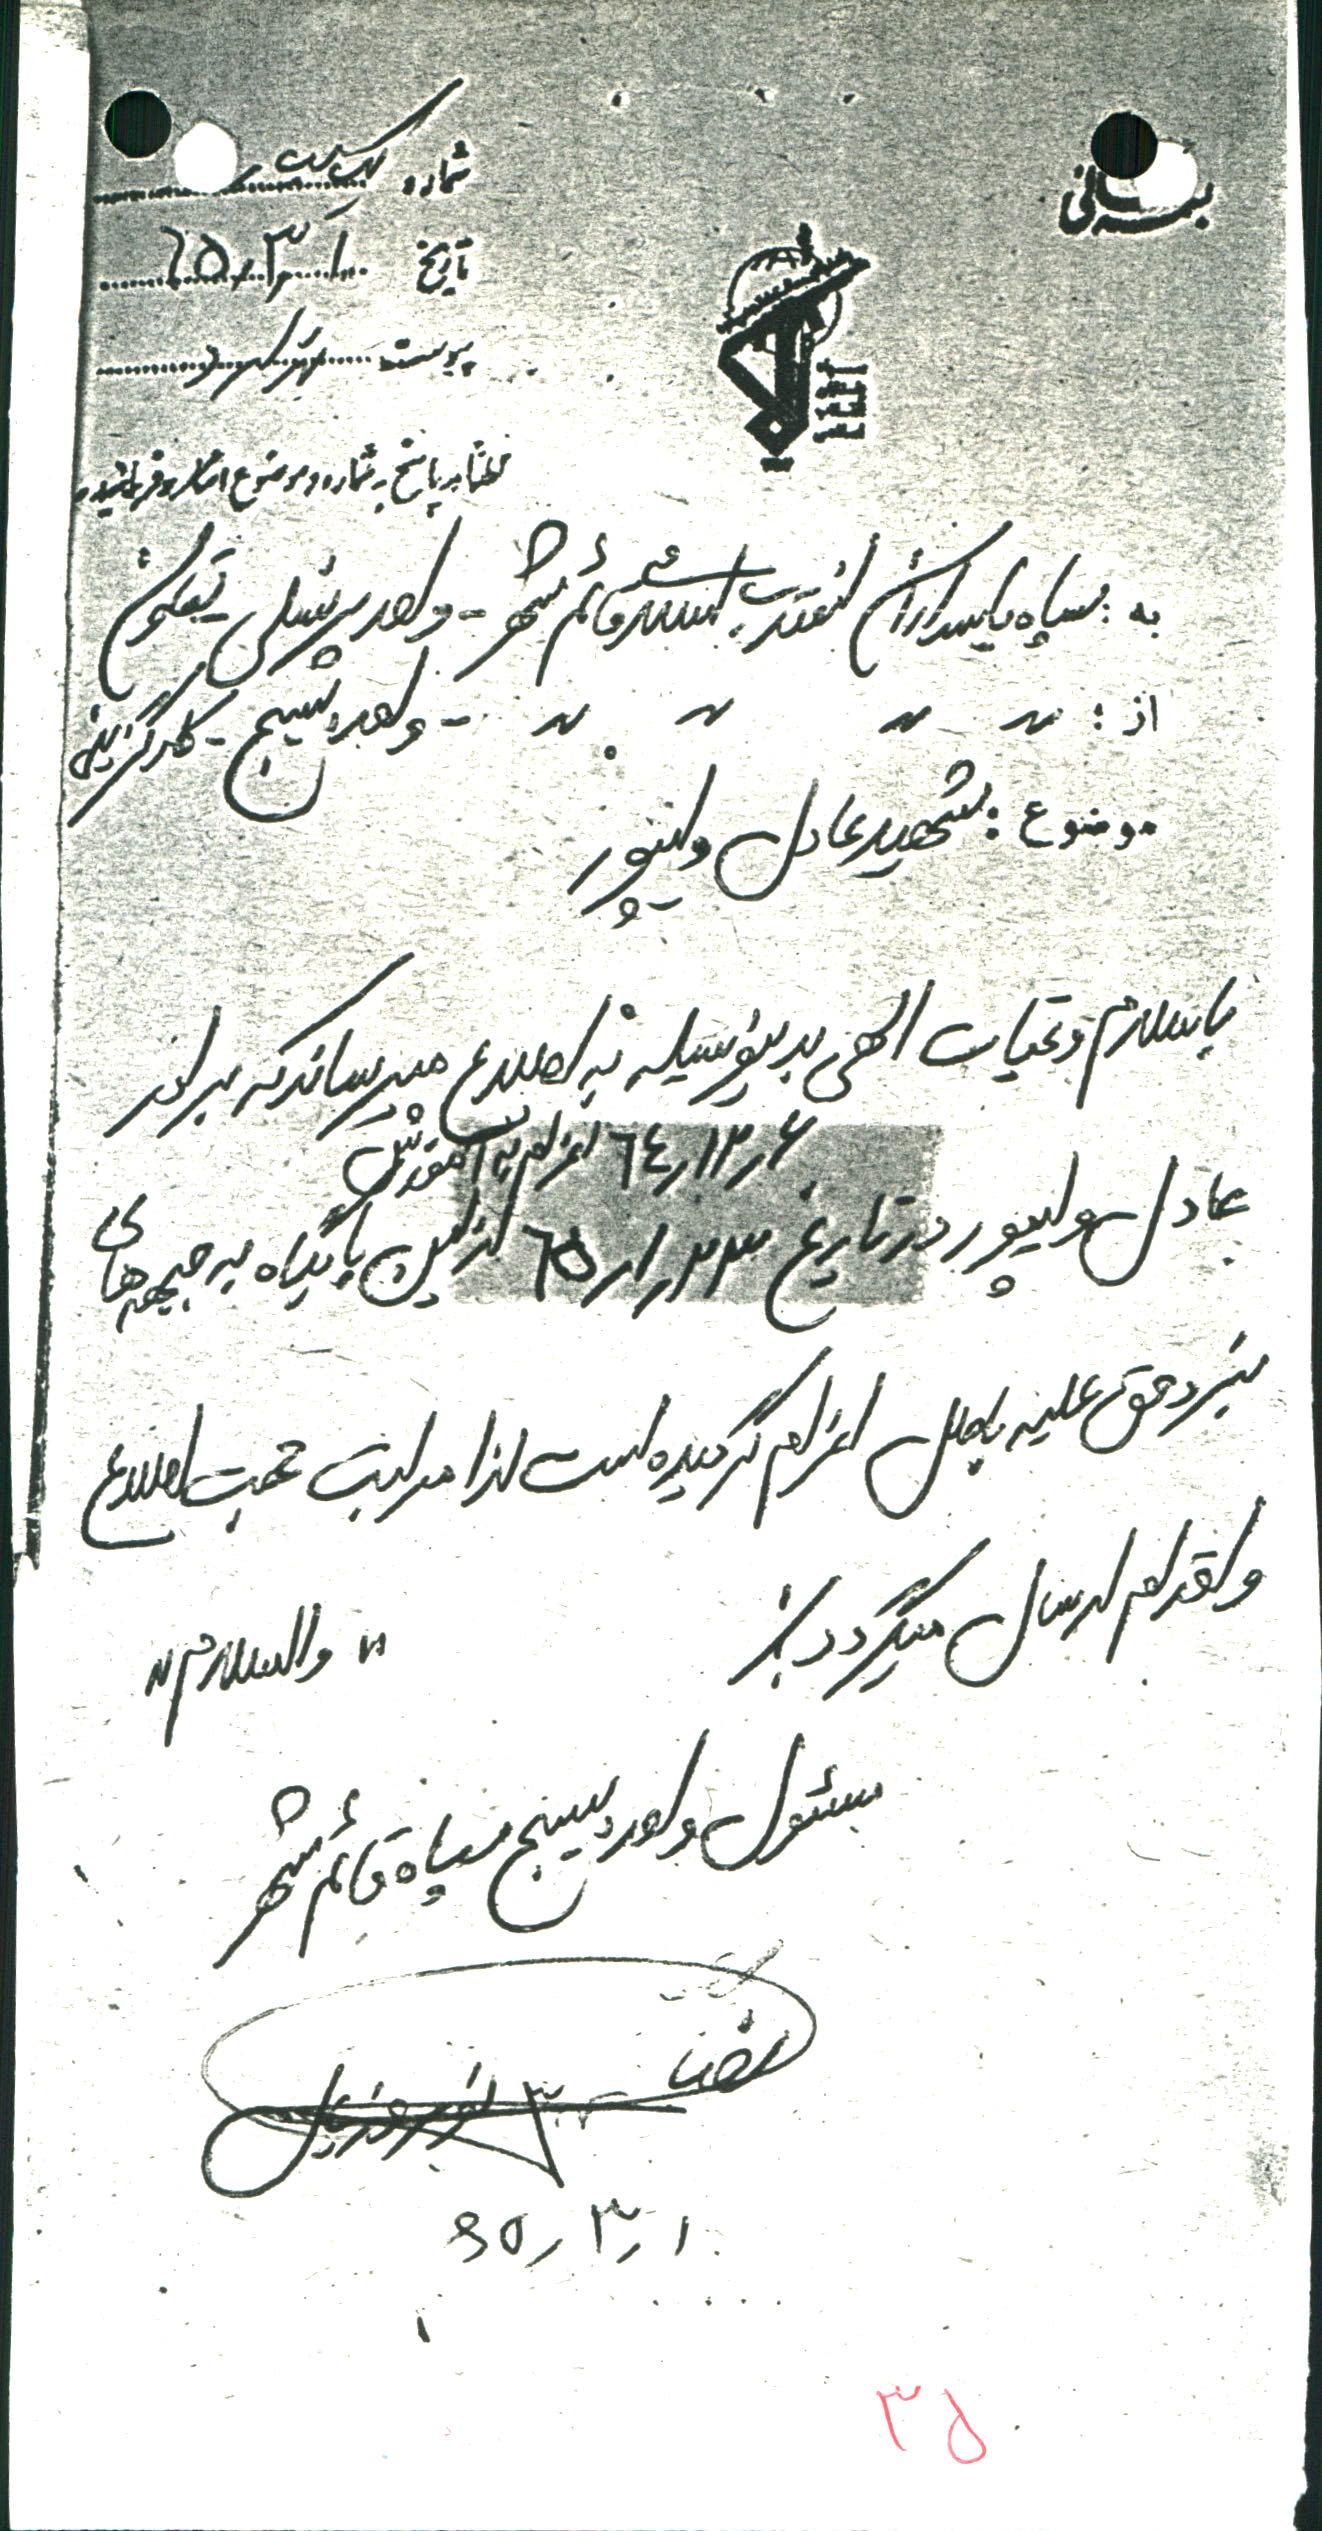 بسمه تعالی
شماره
تاریخ ۶۵٫۳٫۱
پیوست
لطفا در پاسخ به شماره و موضوع اشاره فرمائید
به : سپاه پاسداران انقلاب اسلامی قائم شهر - واحد پرسنلی تعاون
از : " " " " - واحد بسیج - کارگزینی
موضوع : شهید عادل ولیپور
با سلام و تحیات الهی بدینوسیله به اطلاع میرساند که برادر
۶۴٫۱۲٫۶ اعزام به آموزش
عادل ولیپور در تاریخ ۶۵٫۱٫۲۳ از این پایگاه به جبهه های
نبرد حق علیه باطل اعزام گردیده است لذا مراتب جهت اطلاع
و اقدام ارسال میگردد
" والسلام "
مسئول واحد بسیج سپاه قائم شهر
۶۵٫۳٫۱
۳۵